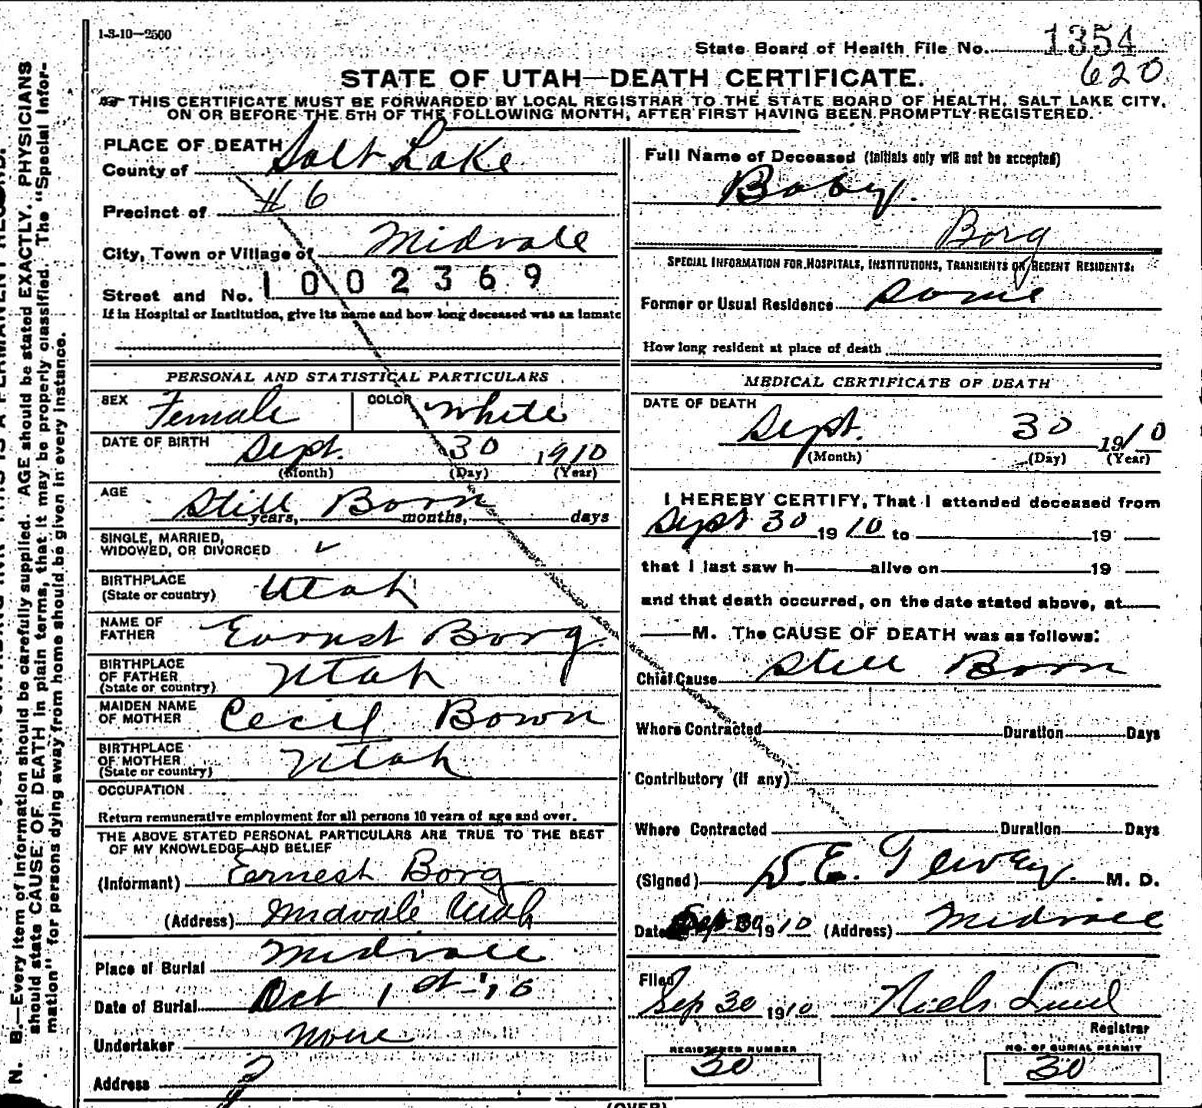 1-3-10—2500
State Board of Health File No. 1354
620
STATE OF UTAH—DEATH CERTIFICATE.
THIS CERTIFICATE MUST BE FORWARDED BY LOCAL REGISTRAR TO THE STATE BOARD OF HEALTH, SALT LAKE CITY,
ON OR BEFORE THE 5TH OF THE FOLLOWING MONTH, AFTER FIRST HAVING BEEN PROMPTLY REGISTERED.
PLACE OF DEATH
County of Salt Lake
Precinct of #6
City, Town or Village of Midvale
Street and No. 1002369
If in Hospital or Institution, give its name and how long deceased was an inmate
PERSONAL AND STATISTICAL PARTICULARS
SEX Female COLOR White
DATE OF BIRTH Sept. 30 1910
(Month) (Day) (Year)
AGE Still Born
years, months, days
SINGLE, MARRIED,
WIDOWED, OR DIVORCED ✓
BIRTHPLACE
(State or country) Utah
NAME OF
FATHER Earnest Borg.
BIRTHPLACE
OF FATHER
(State or country) Utah
MAIDEN NAME
OF MOTHER Cecil Bown
BIRTHPLACE
OF MOTHER
(State or country) Utah
OCCUPATION
Return remunerative employment for all persons 10 years of age and over.
THE ABOVE STATED PERSONAL PARTICULARS ARE TRUE TO THE BEST
OF MY KNOWLEDGE AND BELIEF
(Informant) Earnest Borg
(Address) Midvale Utah
Place of Burial Midvale
Date of Burial Oct 1st-'10
Undertaker None
Address
Full Name of Deceased (Initials only will not be accepted)
Baby.
Borg
SPECIAL INFORMATION FOR HOSPITALS, INSTITUTIONS, TRANSIENTS OR RECENT RESIDENTS.
Former or Usual Residence Same
How long resident at place of death
MEDICAL CERTIFICATE OF DEATH
DATE OF DEATH
Sept. 30 1910
(Month) (Day) (Year)
I HEREBY CERTIFY, That I attended deceased from
Sept 30 1910 to 19
that I last saw h alive on 19
and that death occurred, on the date stated above, at
M. The CAUSE OF DEATH was as follows:
Chief Cause Still Born
Where Contracted Duration Days
Contributory (if any)
Where Contracted Duration Days
(Signed) D. E. M. D.
Date Sep 30 1910 (Address) Midvale
Filed
Sep 30 1910 Niels Lind
Registrar
REGISTERED NUMBER
30
NO. OF BURIAL PERMIT
30
(OVER)
N. B.—Every item of information should be carefully supplied. AGE should be stated EXACTLY. PHYSICIANS
should state CAUSE OF DEATH in plain terms, that it may be properly classified. The "Special Infor-
mation" for persons dying away from home should be given in every instance.